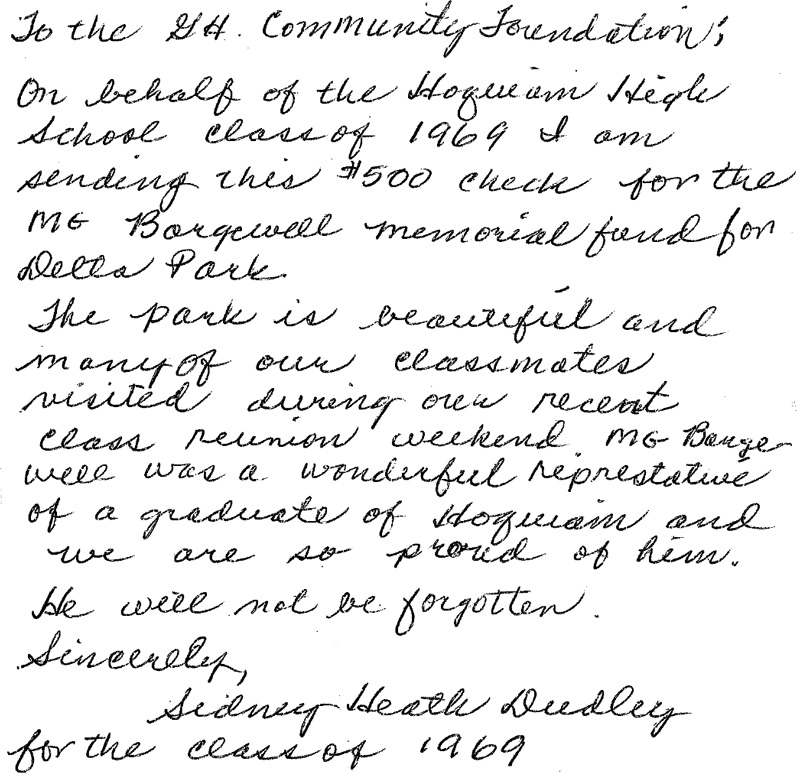 To the GH. Community Foundation;
On behalf of the Hoquiam High
School class of 1969 I am
sending this #500 check for the
MG Bargewell memorial fund for
Delta Park.
The park is beautiful and
many of our classmates
visited during our recent
class reunion weekend. MG Barge-
well was a wonderful represtative
of a graduate of Hoquiam and
we are so proud of him.
He will not be forgotten.
Sincerely,
Sidney Heath Dudley
for the class of 1969